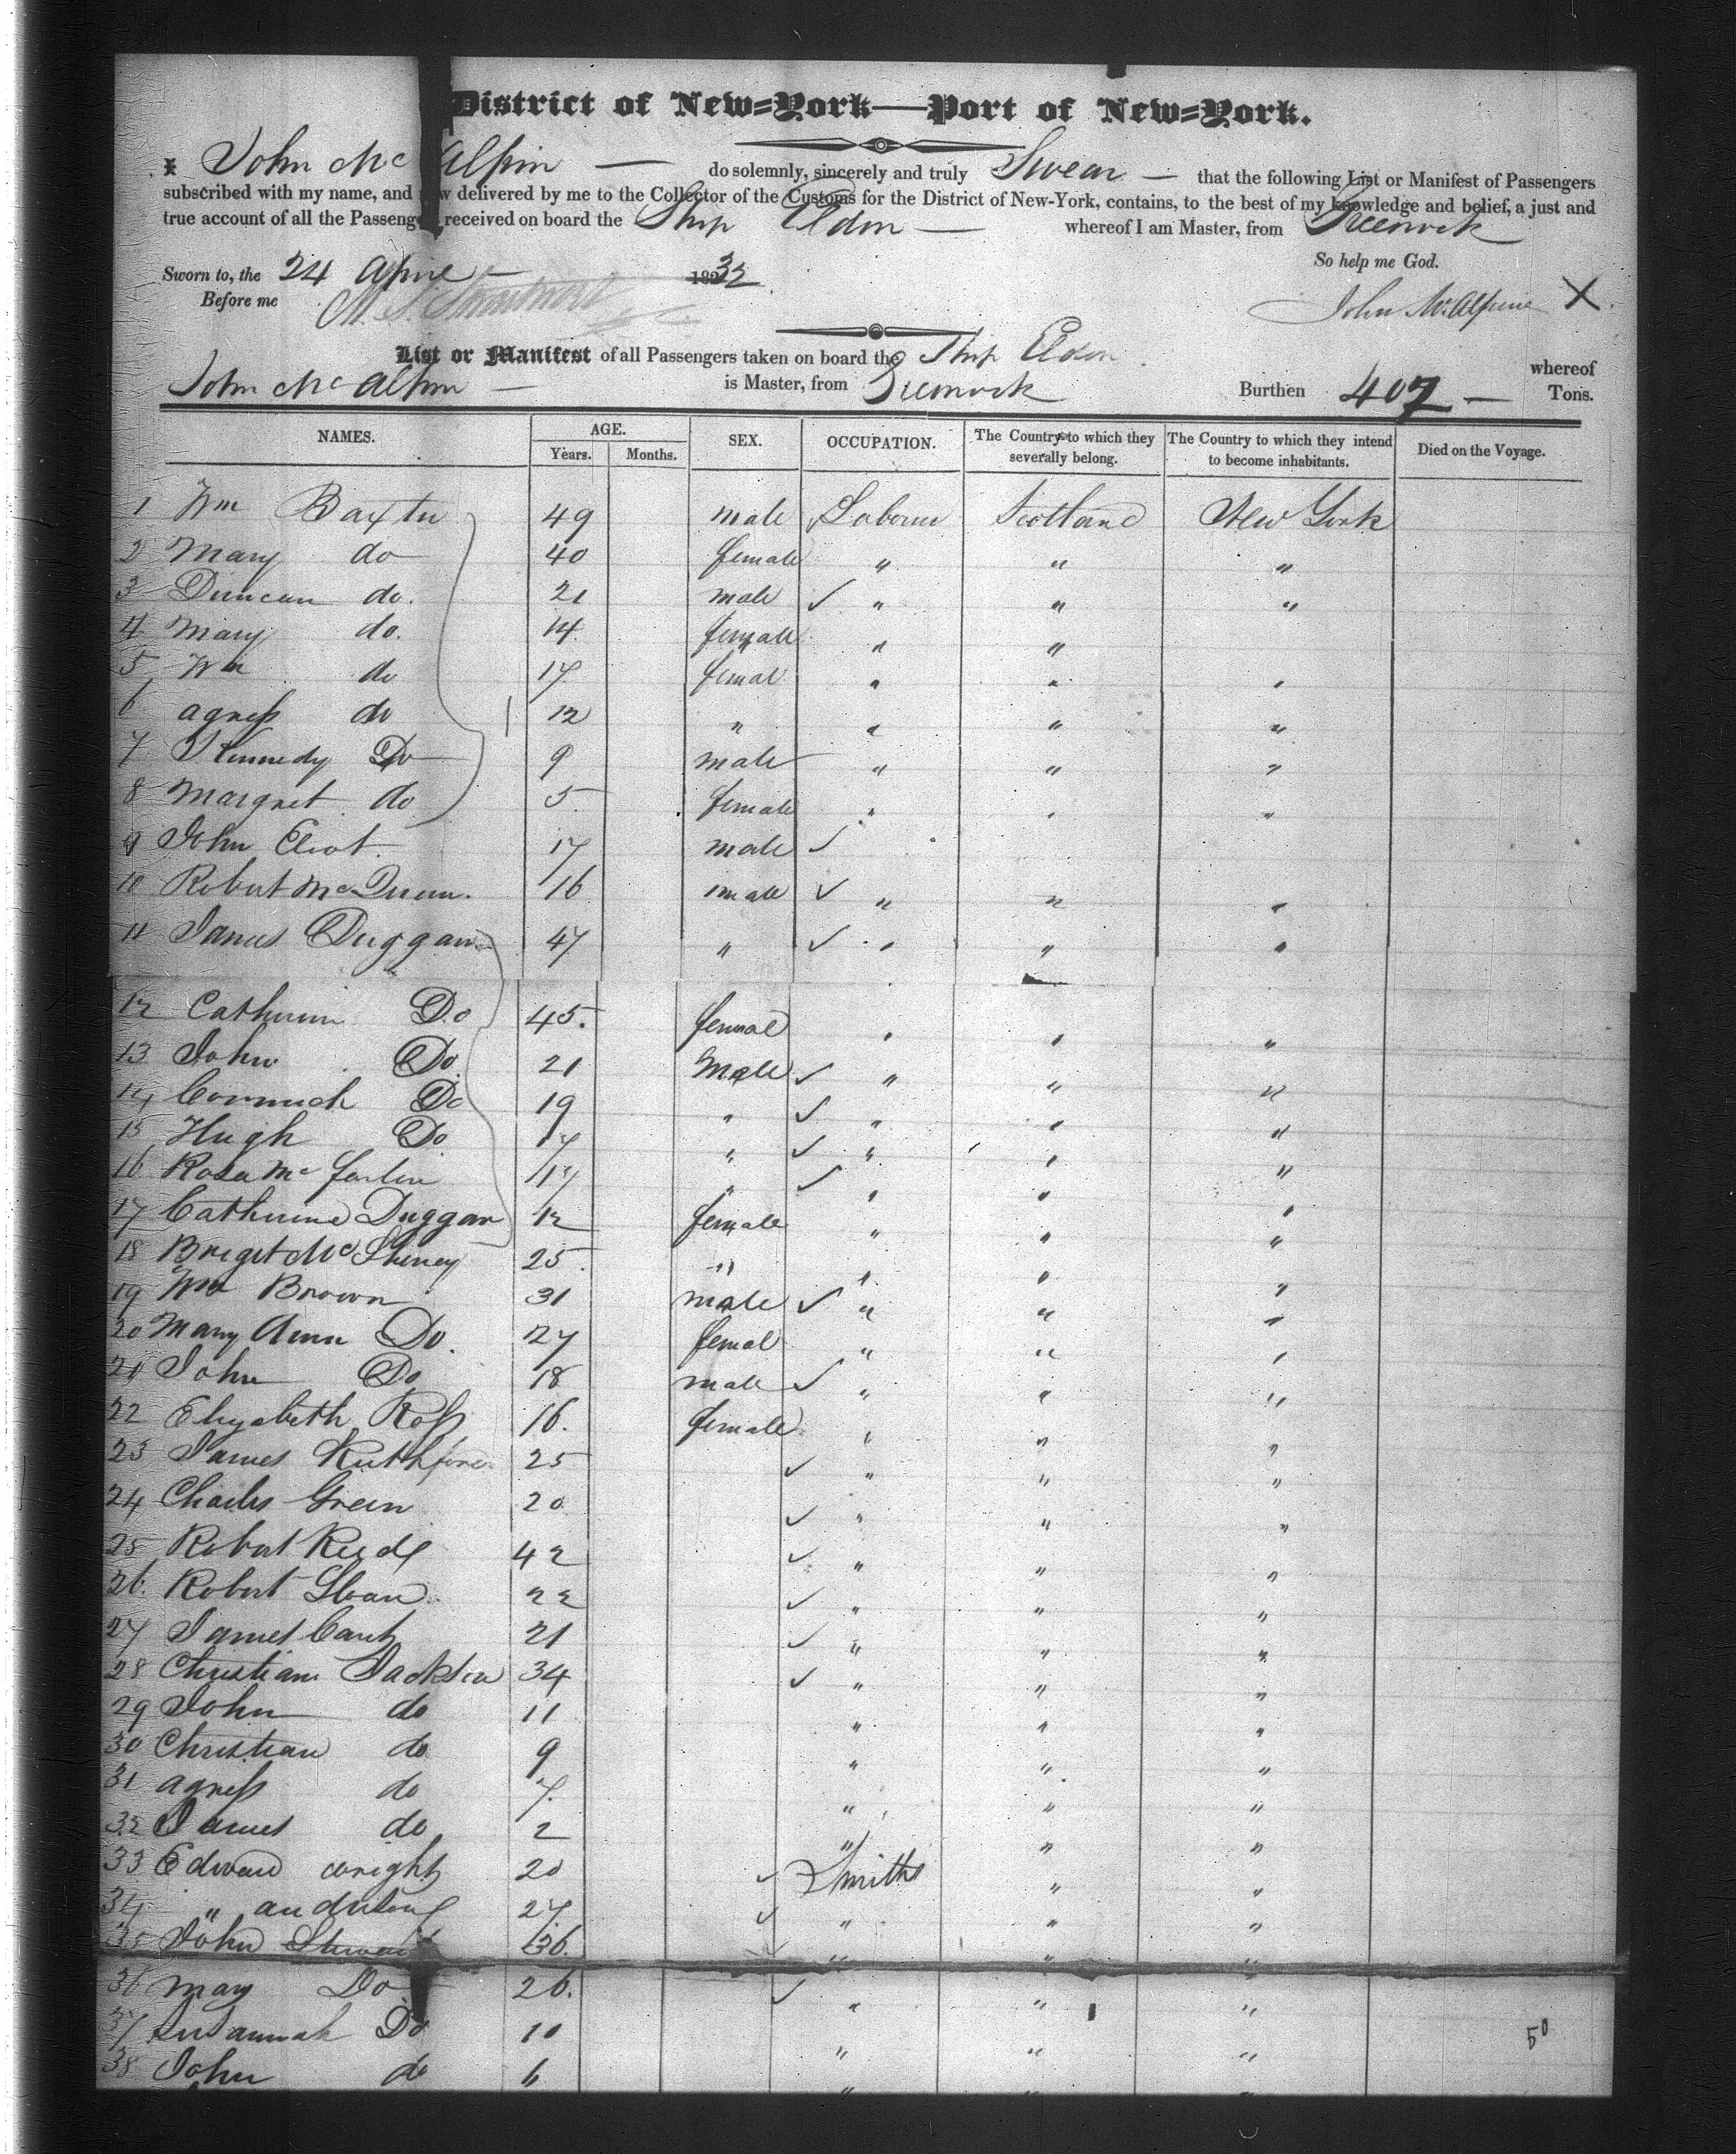 District of New=York—Port of New=York.
I John Mc Alpin — do solemnly, sincerely and truly Swear — that the following List or Manifest of Passengers
subscribed with my name, and now delivered by me to the Collector of the Customs for the District of New-York, contains, to the best of my knowledge and belief, a just and
true account of all the Passengers received on board the Ship Eldon — whereof I am Master, from Greenock
So help me God.
Sworn to, the 24 April — 1832
Before me
John McAlpine X
List or Manifest of all Passengers taken on board the Ship Eldon whereof
John Mc Alpin — is Master, from Greenock Burthen 407 — Tons.
NAMES. AGE. Years. Months. SEX. OCCUPATION. The Country to which they severally belong. The Country to which they intend to become inhabitants. Died on the Voyage.
1 Wm Baxter 49 male Laborer Scotland New York
2 Mary do 40 female " " "
3 Duncan do. 21 male ✓ " " "
4 Mary do. 14 female " "
5 Wm do 17 femal " " "
6 agness do 12 " " " "
7 Kennedy Do 9 male " " "
8 Margret do 5 female " " "
9 John Eliot 17 male ✓ "
10 Robert Mc 16 male ✓ " " "
11 James Duggan 47 " ✓ " " "
12 Catherine Do 45. femal " " "
13 John Do 21 Male ✓ " " "
14 Cormick Do 19 " ✓ " " "
15 Hugh Do 17 " ✓ " " "
16 Rosa Mc farlin 17 " ✓ " " "
17 Catherine Duggan 12 female " " "
18 Briget Mc 25 " " " "
19 Wm Brown 31 male ✓ " " "
20 Mary Ann Do. 27 femal " " "
21 John Do 18 male ✓ " " "
22 Elizabeth Ross 16. female " " "
23 James 25 ✓ " " "
24 Charles Green 20 ✓ " " "
25 Robert 42 ✓ " " "
26 Robert Sloan 22 ✓ " " "
27 James 21 ✓ " " "
28 Christian Jackson 34 ✓ " " "
29 John do 11 " " "
30 Christian do 9 " " "
31 agness do 7. " " "
32 James do 2 " " "
33 Edward wright 20 ✓ Smiths " "
34 " 27 ✓ " " "
35 John Stewart 36. ✓ " " "
36 mary Do 26. ✓ " " "
37 Susannah Do 10 " " "
38 John do 6 "
50